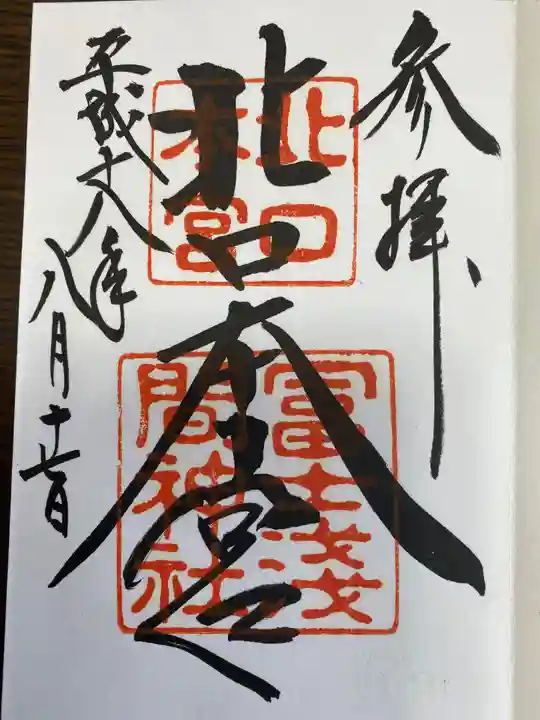 参拝
北口本宮
北口
本宮
冨士浅
間神社
平成十八年
八月十二日